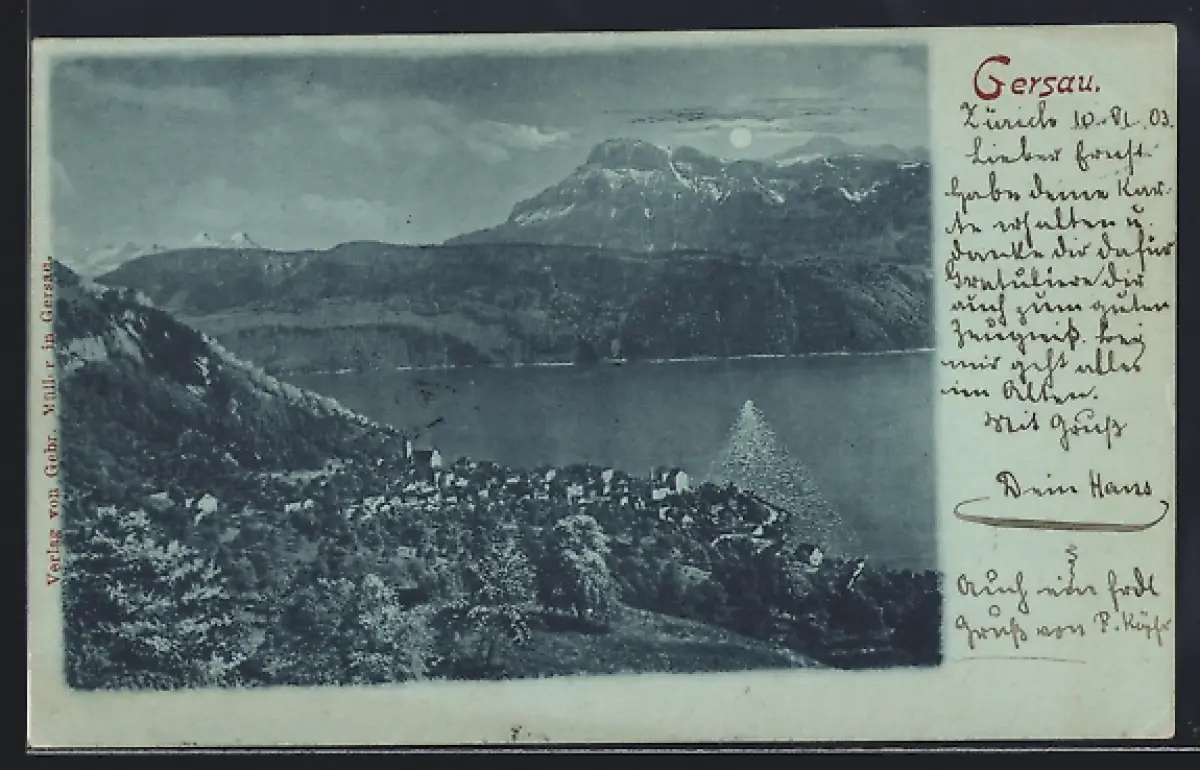 Gersau.
Zürich 10. 03.
Lieber
Habe deine Kar-
te erhalten u.
danke dir dafür
Gratuliere dir
auch zum guten
Zeugniß. Bei
mir geht alles
im Alten.
Mit Gruß
Dein Hans
Auch ein frdl
Gruß von P.
Verlag von Gebr. Müller in Gersau.